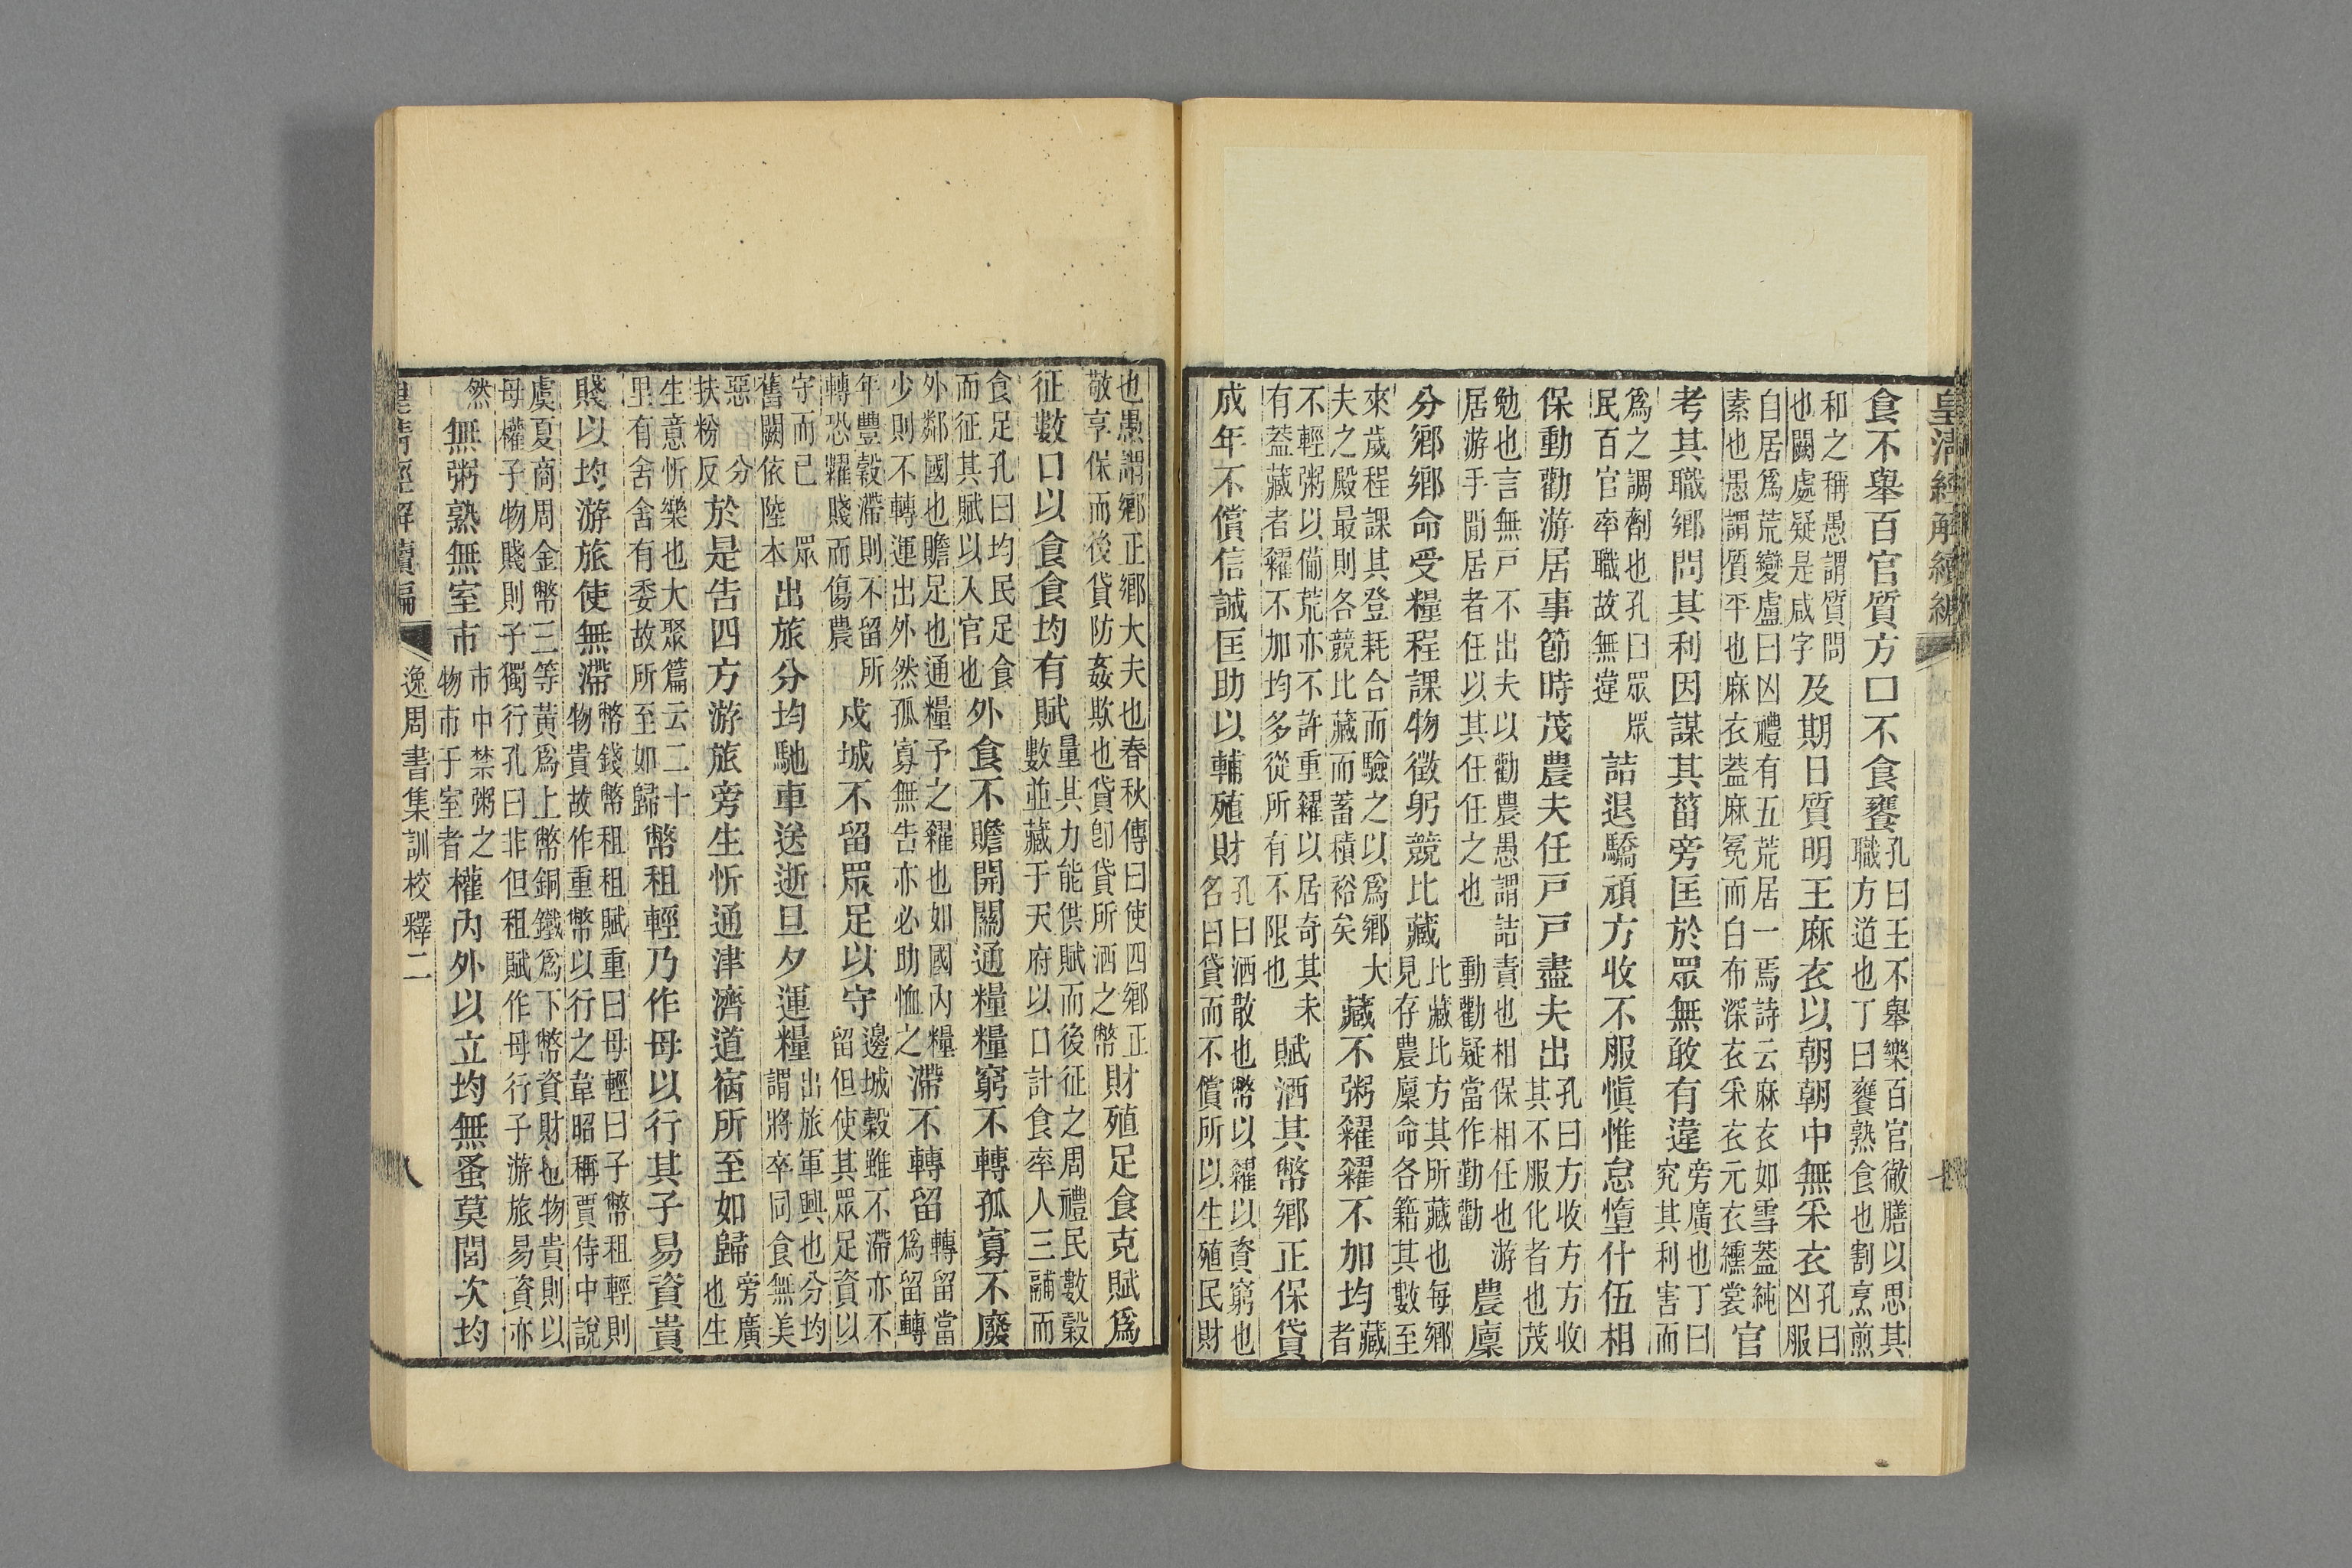 皇清經解續編
食不舉百官質方口不食饔孔曰王不舉樂百官徹膳以思其職方道也丁曰饔熟食也割烹煎
和之稱愚謂質問也闕處疑是咸字及期日質明王麻衣以朝朝中無采衣孔曰凶服
白居爲荒變盧曰凶禮有五荒居一焉詩云麻衣如雪葢純素也愚謂質平也麻衣葢麻冕而白布深衣采衣元衣纁裳官
考其職鄉問其利因謀其菑旁匡於眾無敢有違旁廣也丁曰究其利害而
爲之調劑也孔曰眾眾民百官率職故無違詰退驕頑方收不服愼惟怠墮什伍相
保動勸游居事節時茂農夫任戸戸盡夫出孔曰方收方方收其不服化者也茂
勉也言無戸不出夫以勸農愚謂詰責也相保相任也游居游手閒居者任以其任任之也動勸疑當作勤勸農廩
分鄉鄉命受糧程課物徵躬競比藏比藏比方其所藏也每鄉見存農廩命各籍其數至
來歲程課其登耗合而驗之以爲鄉大夫之殿最則各競比藏而蓄積裕矣藏不粥糴糴不加均藏者
不輕粥以備荒亦不許重糴以居奇其未有葢藏者糴不加均多從所有不限也賦洒其幣鄉正保貸
成年不償信誠匡助以輔殖財孔曰洒散也幣以糴以資窮也名曰貸而不償所以生殖民財
也愚謂鄉正鄉大夫也春秋傳曰使四鄉正敬享保而後貸防姦欺也貸卽貸所洒之幣財殖足食克賦爲
征數口以食食均有賦量其力能供賦而後征之周禮民數穀數並藏于天府以口計食率人三鬴而
食足孔曰均民足食而征其賦以入官也外食不贍開關通糧糧窮不轉孤寡不廢
外鄰國也贍足也通糧予之糴也如國內糧少則不轉運出外然孤寡無告亦必助恤之滯不轉留轉留當爲留轉
年豐穀滯則不留所轉恐糶賤而傷農戍城不留眾足以守邊城穀雖不滯亦不留但使其眾足資以
守而已眾舊闕依陸本出旅分均馳車送逝旦夕運糧出旅軍興也分均謂將卒同食無美
惡分扶粉反於是告四方游旅旁生忻通津濟道宿所至如歸旁廣也生
生意忻樂也大聚篇云二十里有舍舍有委故所至如歸幣租輕乃作母以行其子易資貴
賤以均游旅使無滯幣錢幣租租賦重曰母輕曰子幣租輕則物貴故作重幣以行之韋昭稱賈侍中說
虞夏商周金幣三等黃爲上幣銅鐵爲下幣資財也物貴則以母權子物賤則子獨行孔曰非但租賦作母行子游旅易資亦
然無粥熟無室市市中禁粥之物市于室者權內外以立均無蚤莫閭次均
皇清經解續編 逸周書集訓校釋二 八